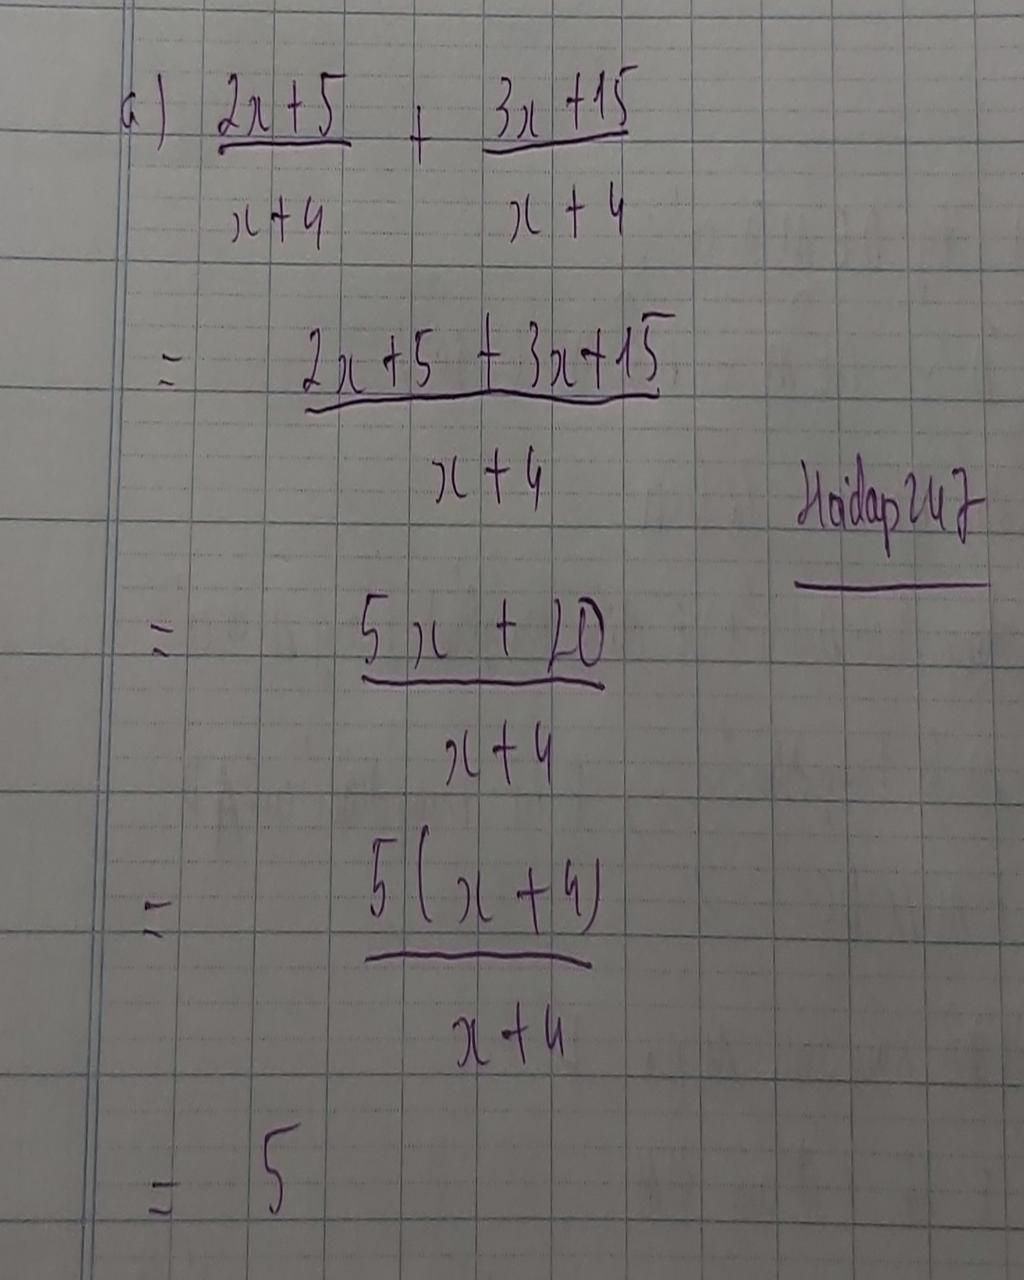 a) (2x+5)/(x+4) + (3x+15)/(x+4)
= (2x+5+3x+15)/(x+4)
Hoidap247
= (5x+20)/(x+4)
= 5(x+4)/(x+4)
= 5